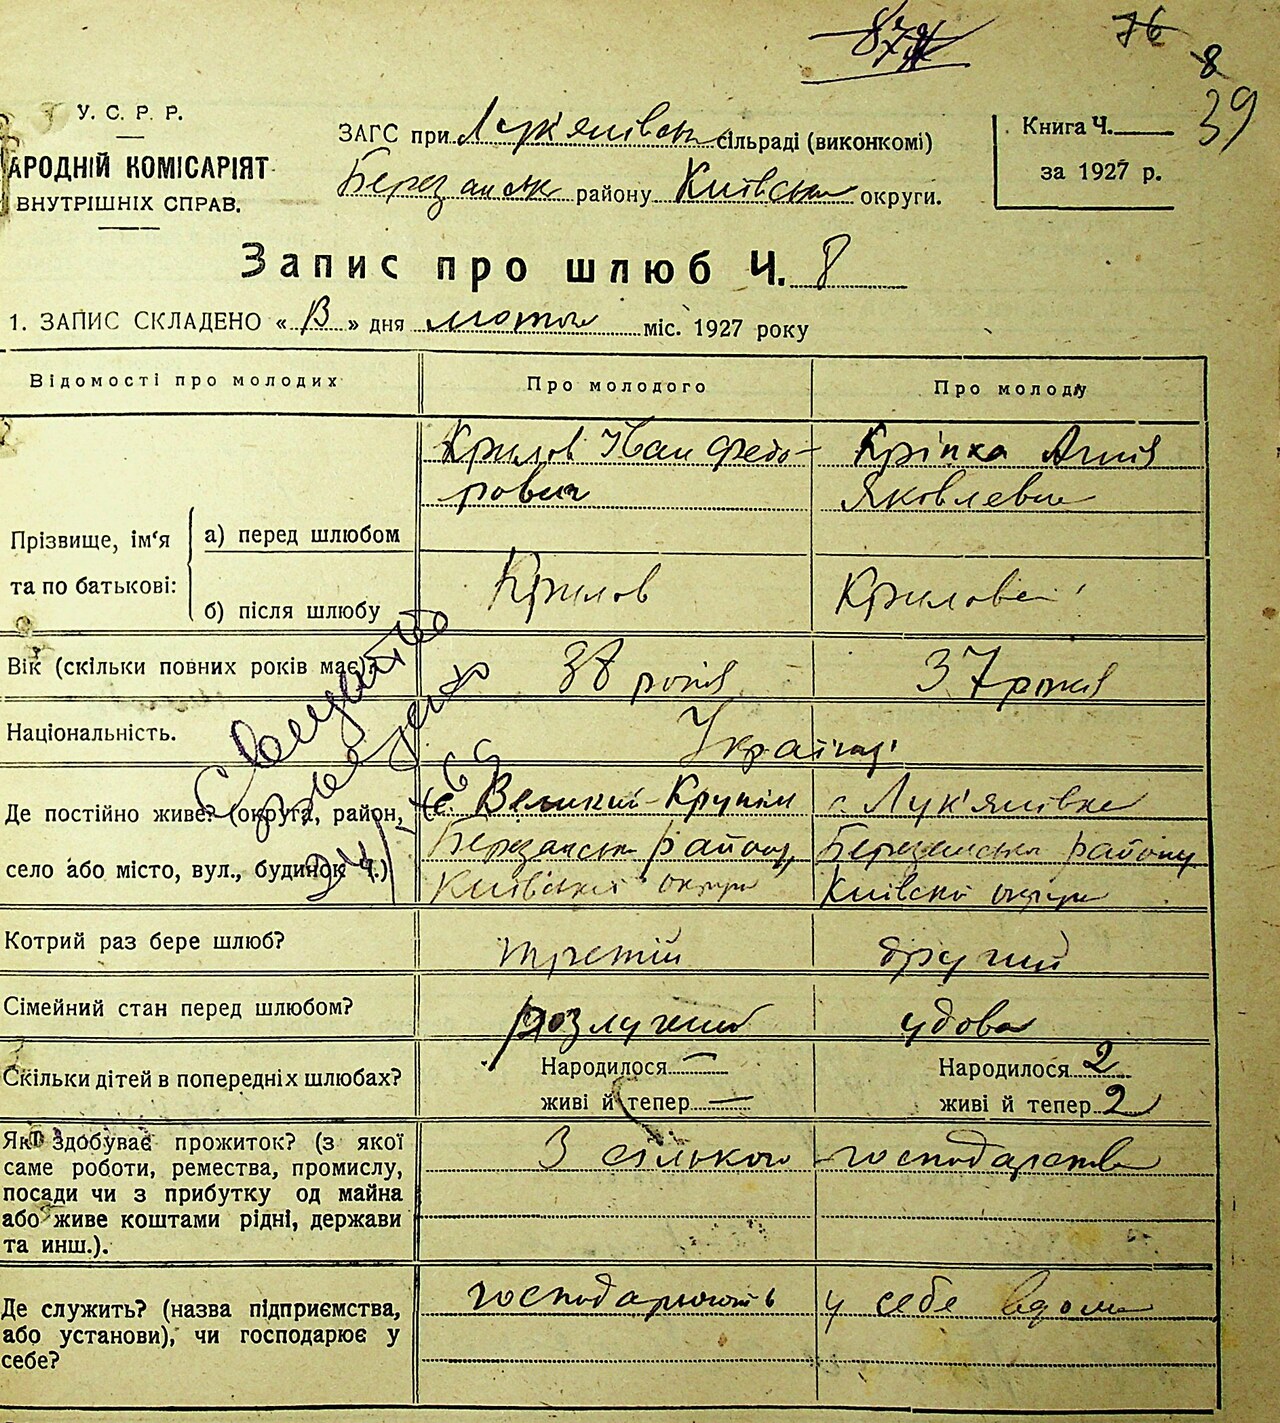 76
8
39
У. С. Р. Р.
АРОДНІЙ КОМІСАРІЯТ
ВНУТРІШНІХ СПРАВ.
ЗАГС при Лук'янівськ сільраді (виконкомі)
Березанськ району Київськ округи.
Книга Ч.
за 1927 р.
Запис про шлюб Ч. 8
1. ЗАПИС СКЛАДЕНО « » дня лютого міс. 1927 року
Відомості про молодих Про молодого Про молоду
Крилов Іван Федо-
рович
Кріпка
Яковлевна
Прізвище, ім'я та по батькові:
а) перед шлюбом
б) після шлюбу
Крилов Крилова
Вік (скільки повних років має). 38 років 37 років
Національність. Українці
Де постійно живе? (округа, район,
село або місто, вул., будинок Ч.)
с. Великий-Крупіль
Березанськ району,
Київської округи
с Лук'янівка
Березанськ району
Київскої округи
Свидетство
Котрий раз бере шлюб? третій другий
Сімейний стан перед шлюбом? розлучений удова
Скільки дітей в попередніх шлюбах?
Народилося —
живі й тепер —
Народилося 2
живі й тепер 2
Як здобуває прожиток? (з якої
саме роботи, ремества, промислу,
посади чи з прибутку од майна
або живе коштами рідні, держави
та инш.).
З сільского господарства
Де служить? (назва підприємства,
або установи), чи господарює у
себе?
господарюють у себе вдома